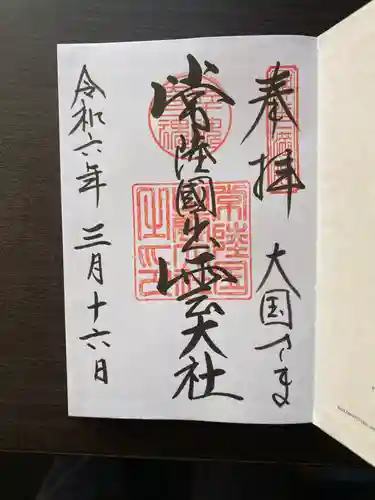 奉拝
大国さま
常陸國出雲大社
令和六年三月十六日